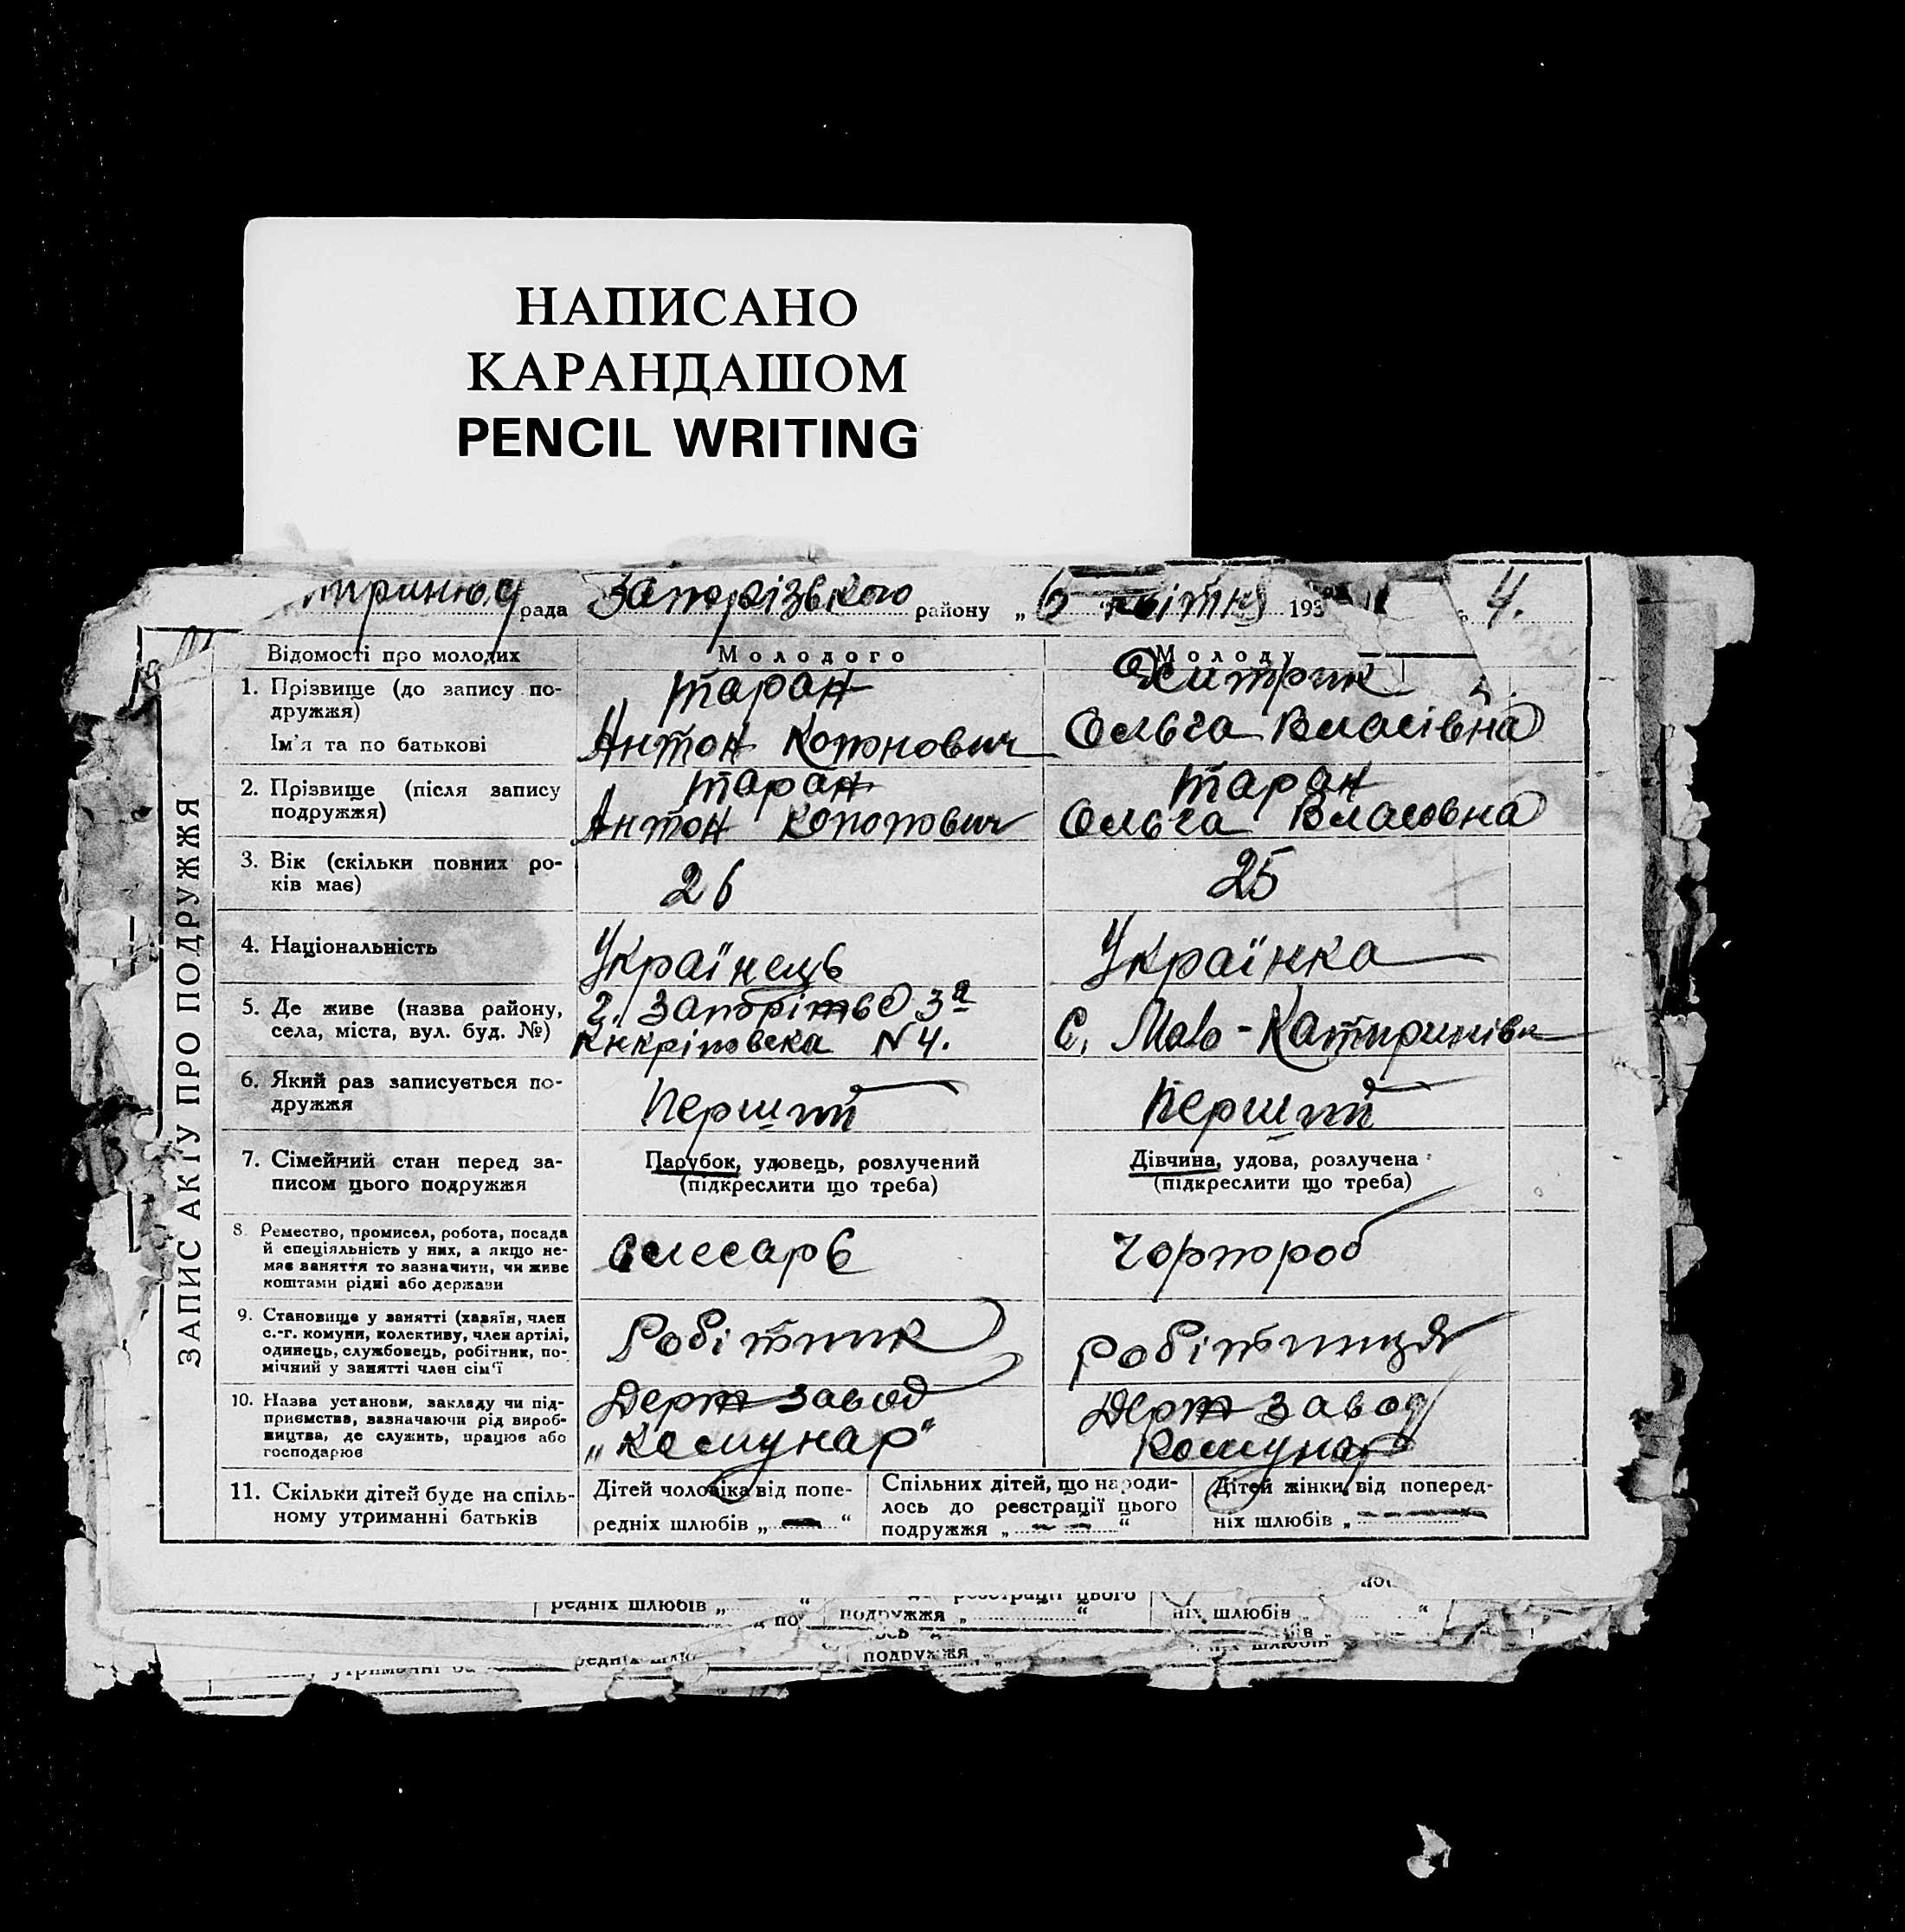 НАПИСАНО
КАРАНДАШОМ
PENCIL WRITING
рада Запорізького району „6 квітня 193 4.
ЗАПИС АКТУ ПРО ПОДРУЖЖЯ
Відомості про молодих Молодого Молоду
1. Прізвище (до запису по-
дружжя)
Таран
Ім'я та по батькові
Антон Ольга Власівна
2. Прізвище (після запису
подружжя)
Таран Таран
Антон Ольга Власовна
3. Вік (скільки повних ро-
ків має)
26 25
4. Національність
Українець Українка
5. Де живе (назва району,
села, міста, вул. буд. №)
N 4. С. Мало-Катиринівк
6. Який раз записується по-
дружжя
Перший Перший
7. Сімейний стан перед за-
писом цього подружжя
Парубок, удовець, розлучений
(підкреслити що треба)
Дівчина, удова, розлучена
(підкреслити що треба)
8 Ремество, промисел, робота, посада
й спеціяльність у них, а якщо не-
має заняття то зазначити, чи живе
коштами рідні або держави
слесарь Чорнороб
9. Становище у занятті (хазяїн, член
с.-г. комуни, колективу, член артілі,
одинець, службовець, робітник, по-
мічний у занятті член сім'ї
Робітник робітниця
10. Назва установи, закладу чи під-
приємства, зазначаючи рід вироб-
ництва, де служить, працює або
господарює
Держ завод
„Комунар"
Держ завод
Комунар
11. Скільки дітей буде на спіль-
ному утриманні батьків
Дітей чоловіка від попе-
редніх шлюбів „ — “
Спільних дітей, що народи-
лось до реєстрації цього
подружжя „ — — “
Дітей жінки від поперед-
ніх шлюбів „ — — — —
редніх шлюбів „ “
реєстрації цього
подружжя „ “
ніх шлюбів „ “
подружжя „